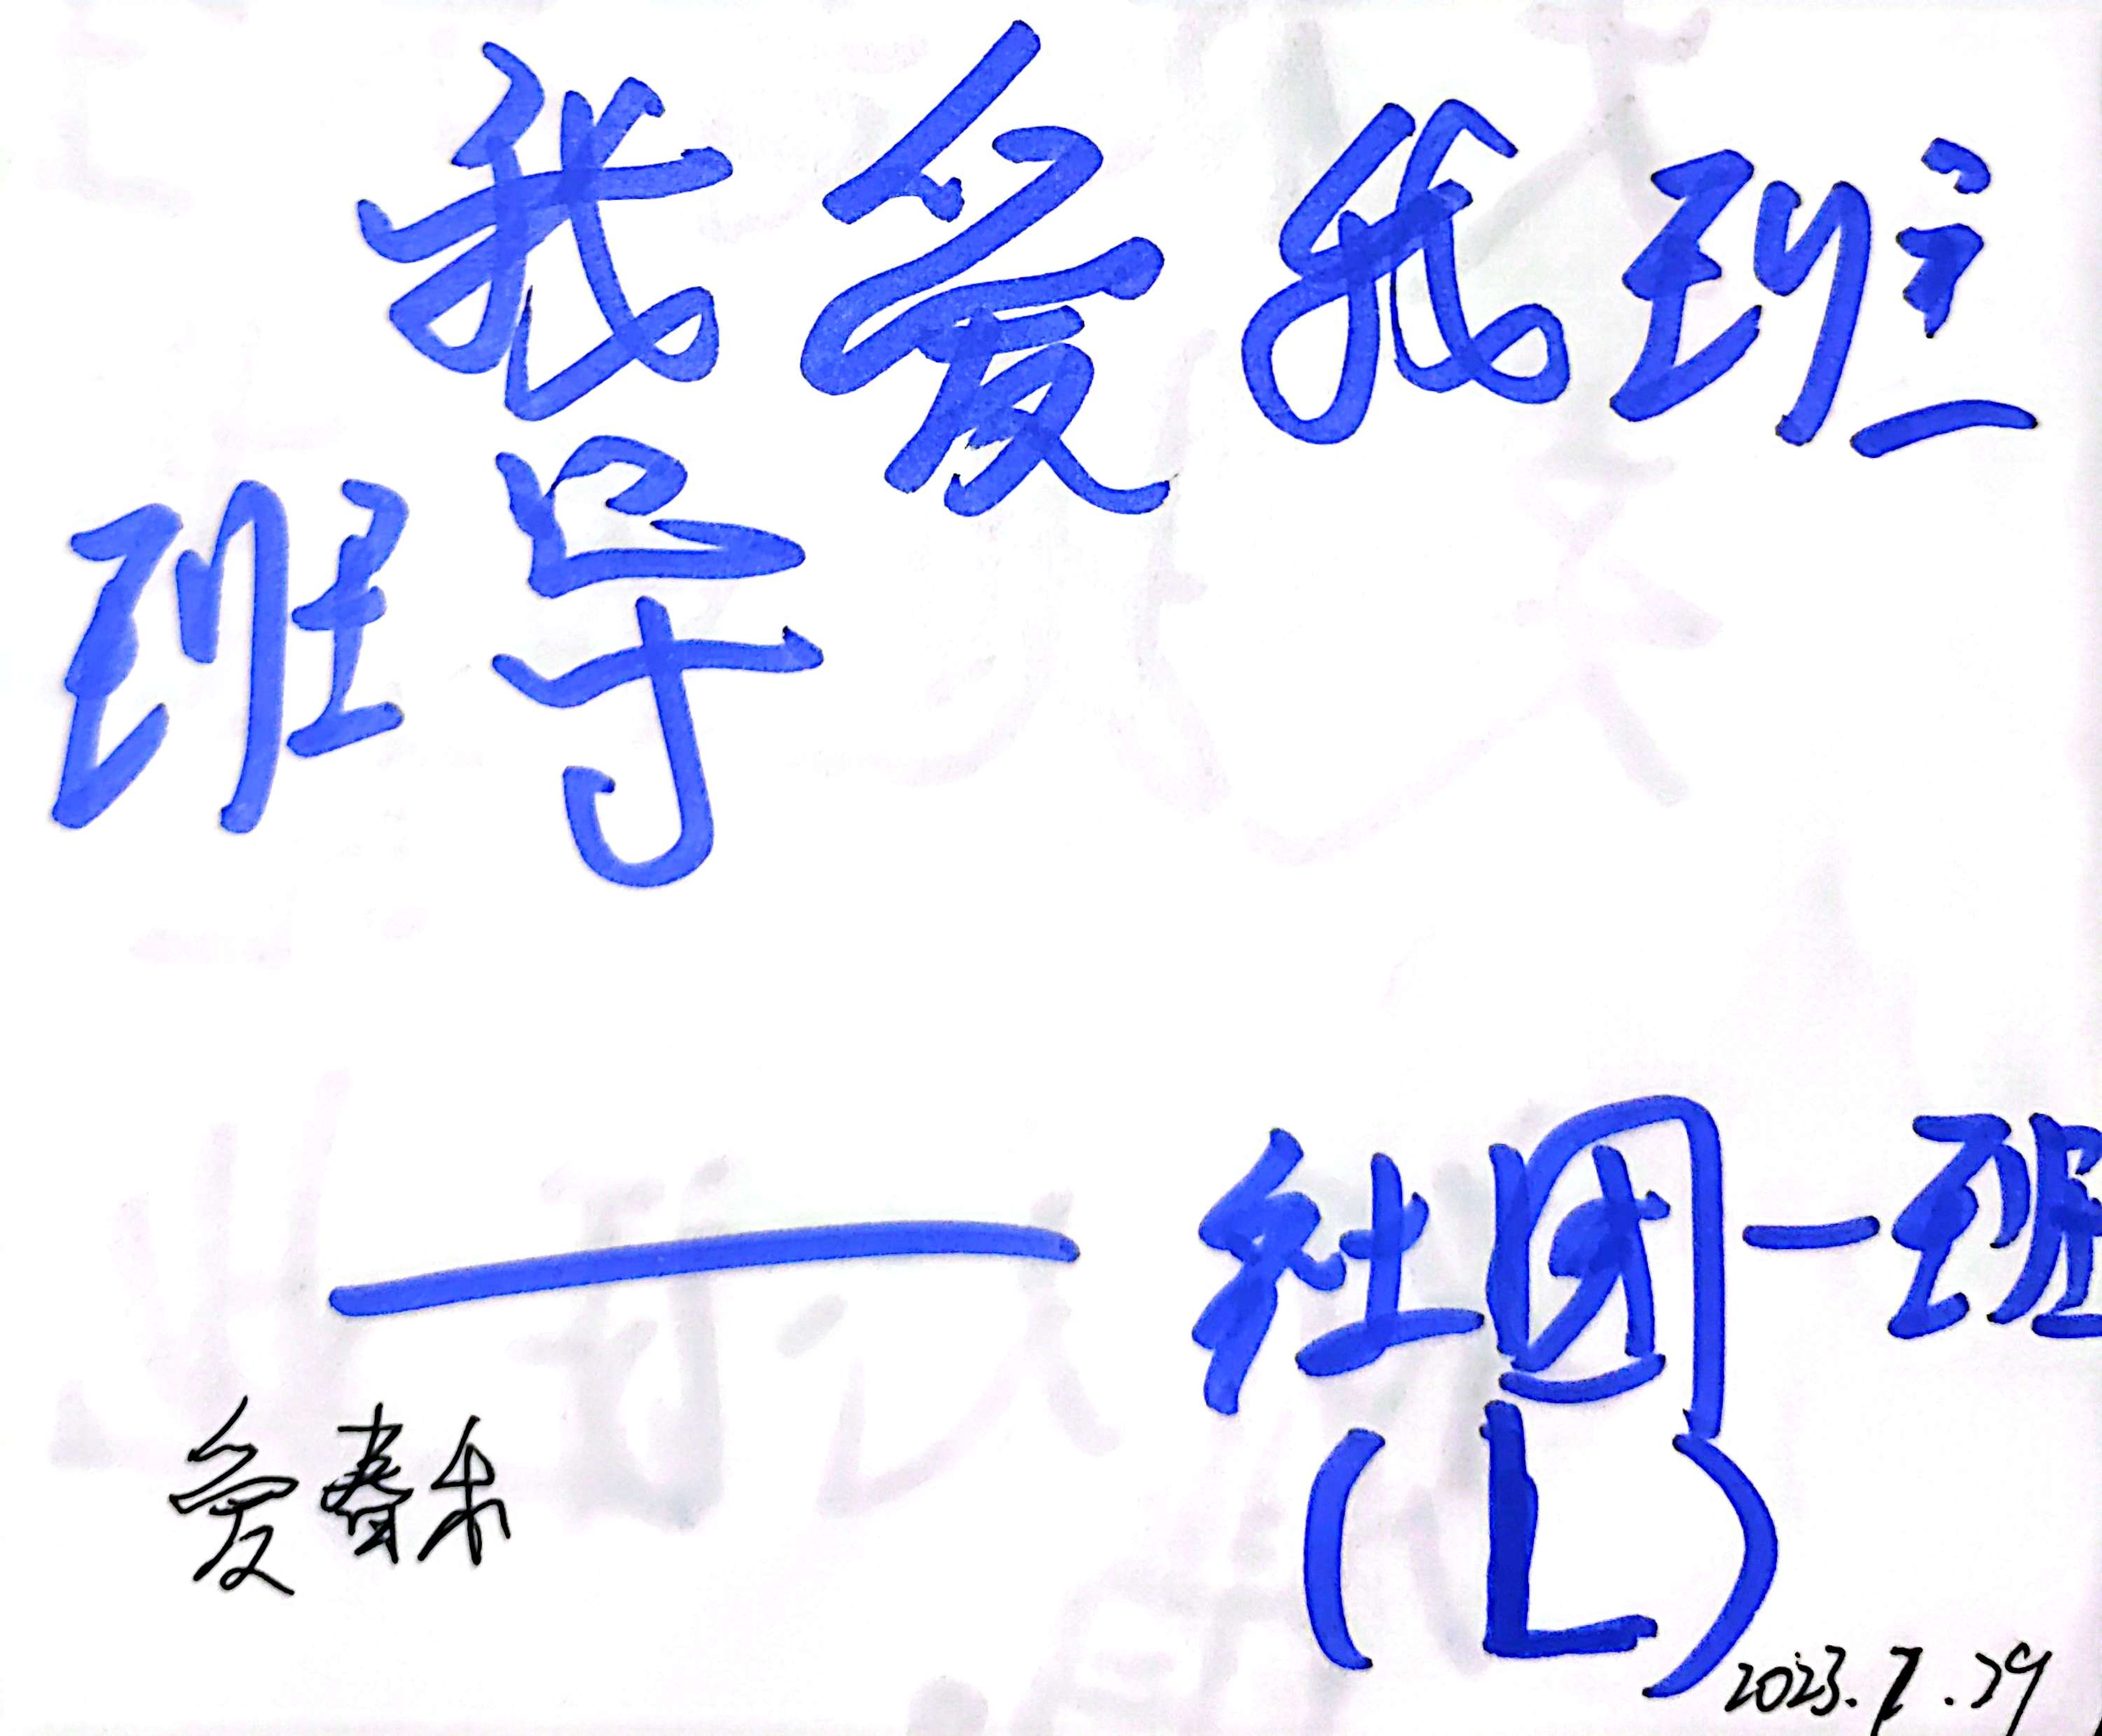 我爱我班
班导
—社团一班
(L)
爱春未
2023.7.29